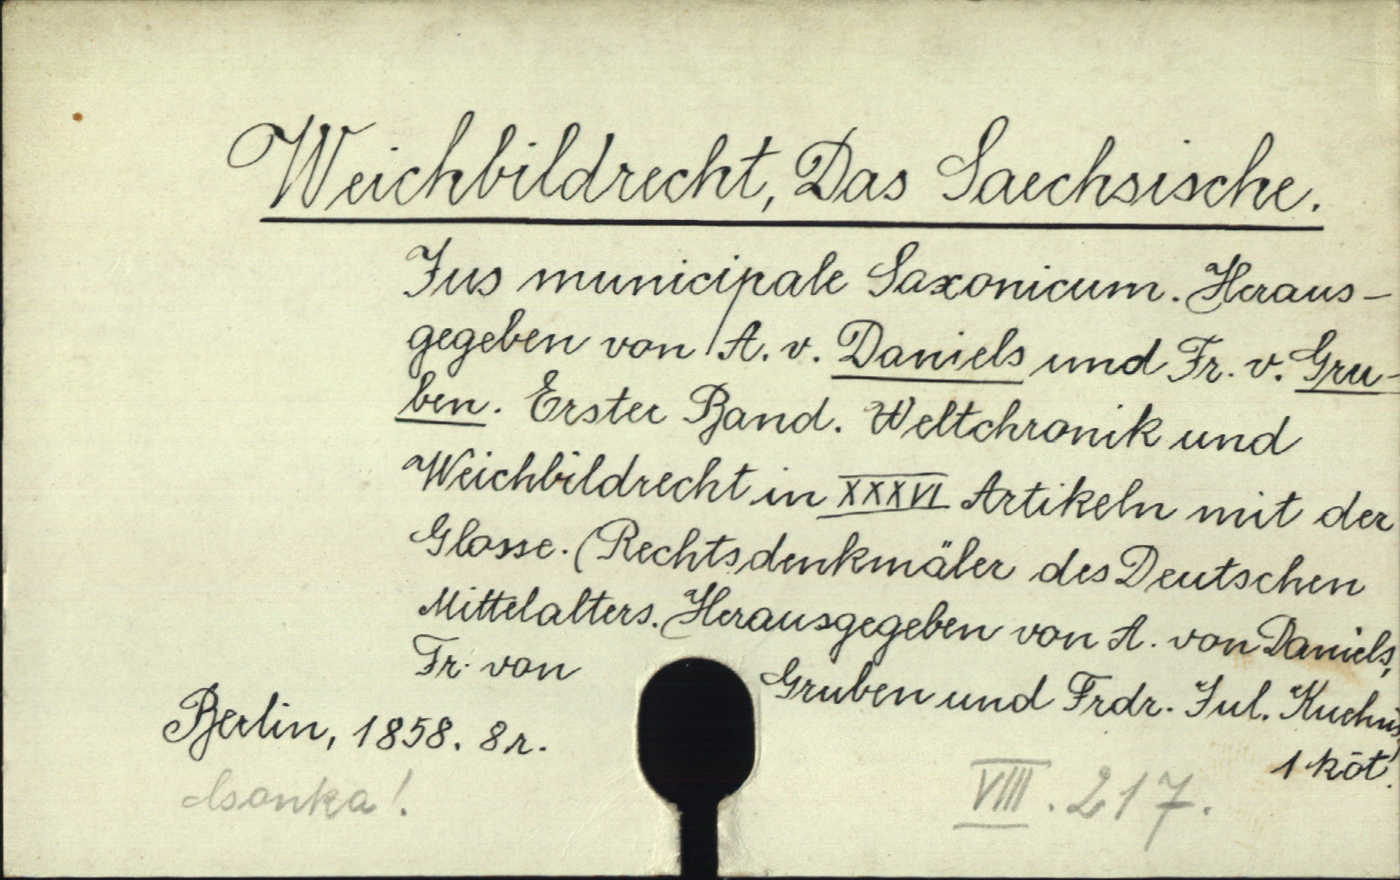 Weichbildrecht, Das Saechsische.
Jus municipale Saxonicum. Heraus-
gegeben von A. v. Daniels und Fr. v. Gru-
ben. Erster Band. Weltchronik und
Weichbildrecht in XXXVI Artikeln mit der
Glosse. (Rechtsdenkmäler des Deutschen
Mittelalters. Herausgegeben von A. von Daniels,
Fr. von Gruben und Frdr. Jul. Kuehns)
Berlin, 1858. 8r. 1 köt.
Csonka! VIII. 217.